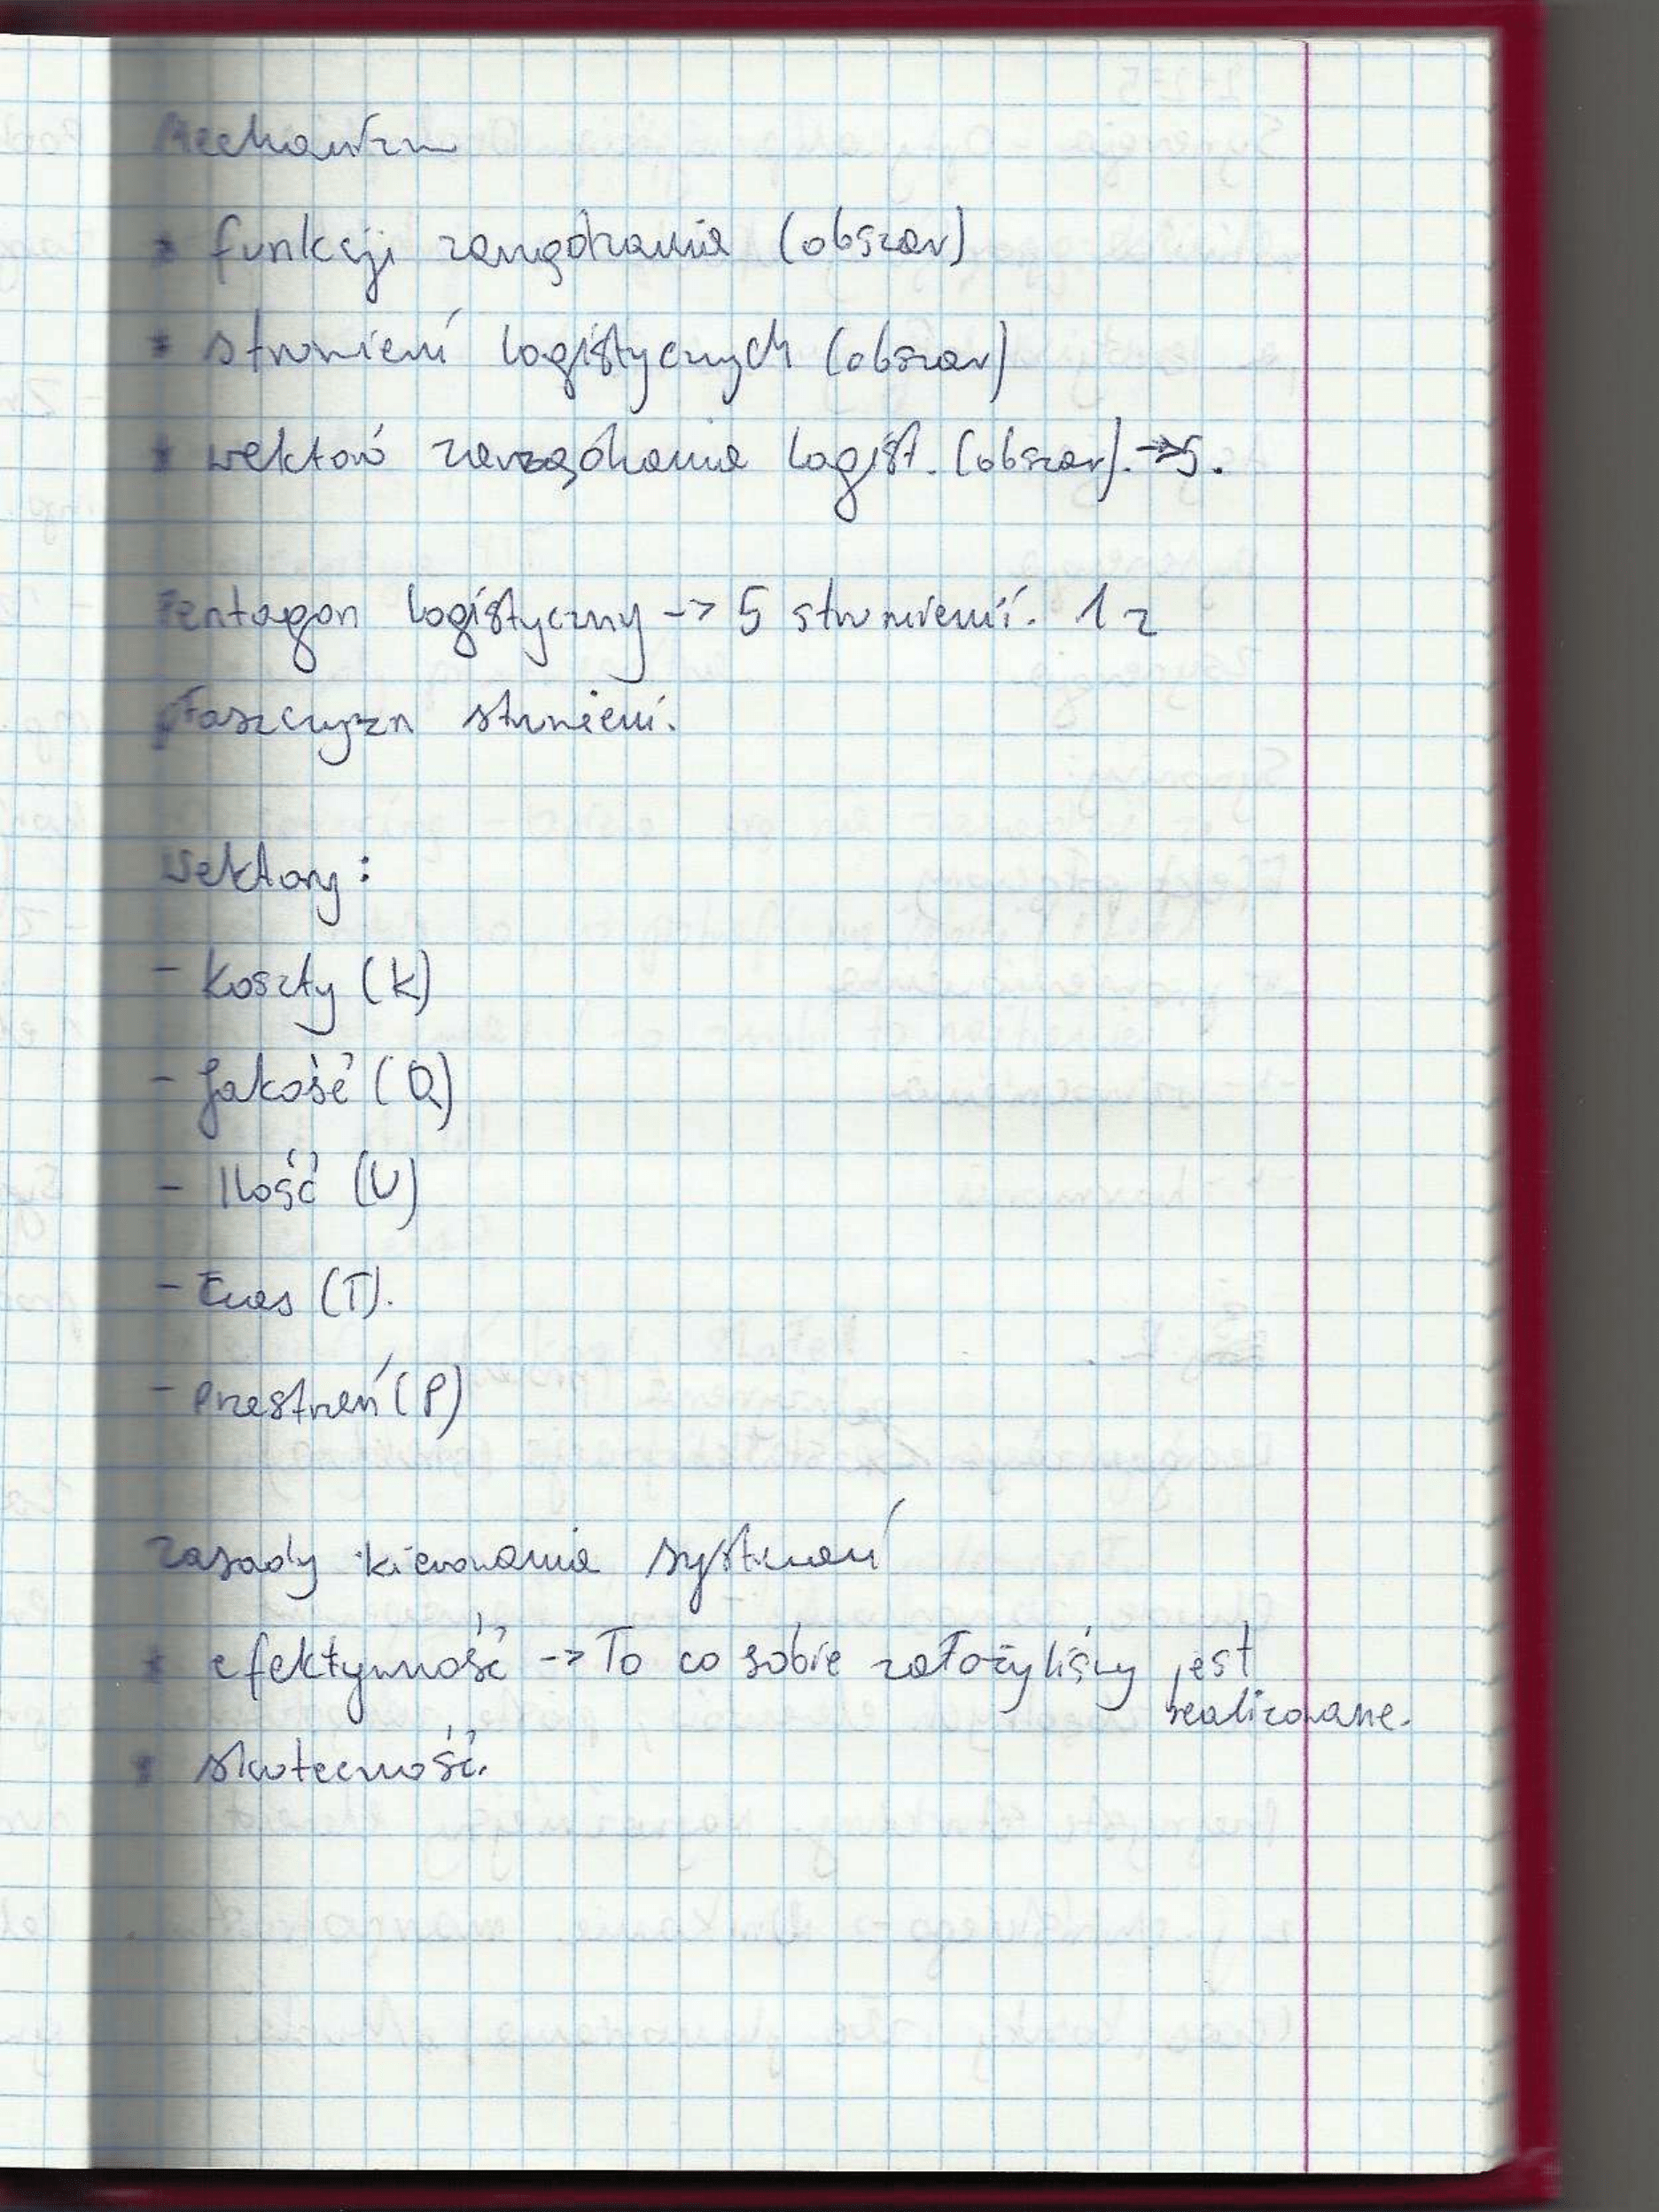 Mechanizm
* funkcji zarządzania (obszar)
* strumieni logistycznych (obszar)
* wektorów zarządzania logist. (obszar). → 5.
Pentagon logistyczny -> 5 strumieni. 1 z
płaszczyzn strumieni.
Wektory:
- Koszty (K)
- Jakość (Q)
- Ilość (U)
- Czas (T).
- Przestrzeń (P)
Zasady kierowania
* efektywność -> To co sobie założyliśmy jest
realizowane.
* skuteczność.